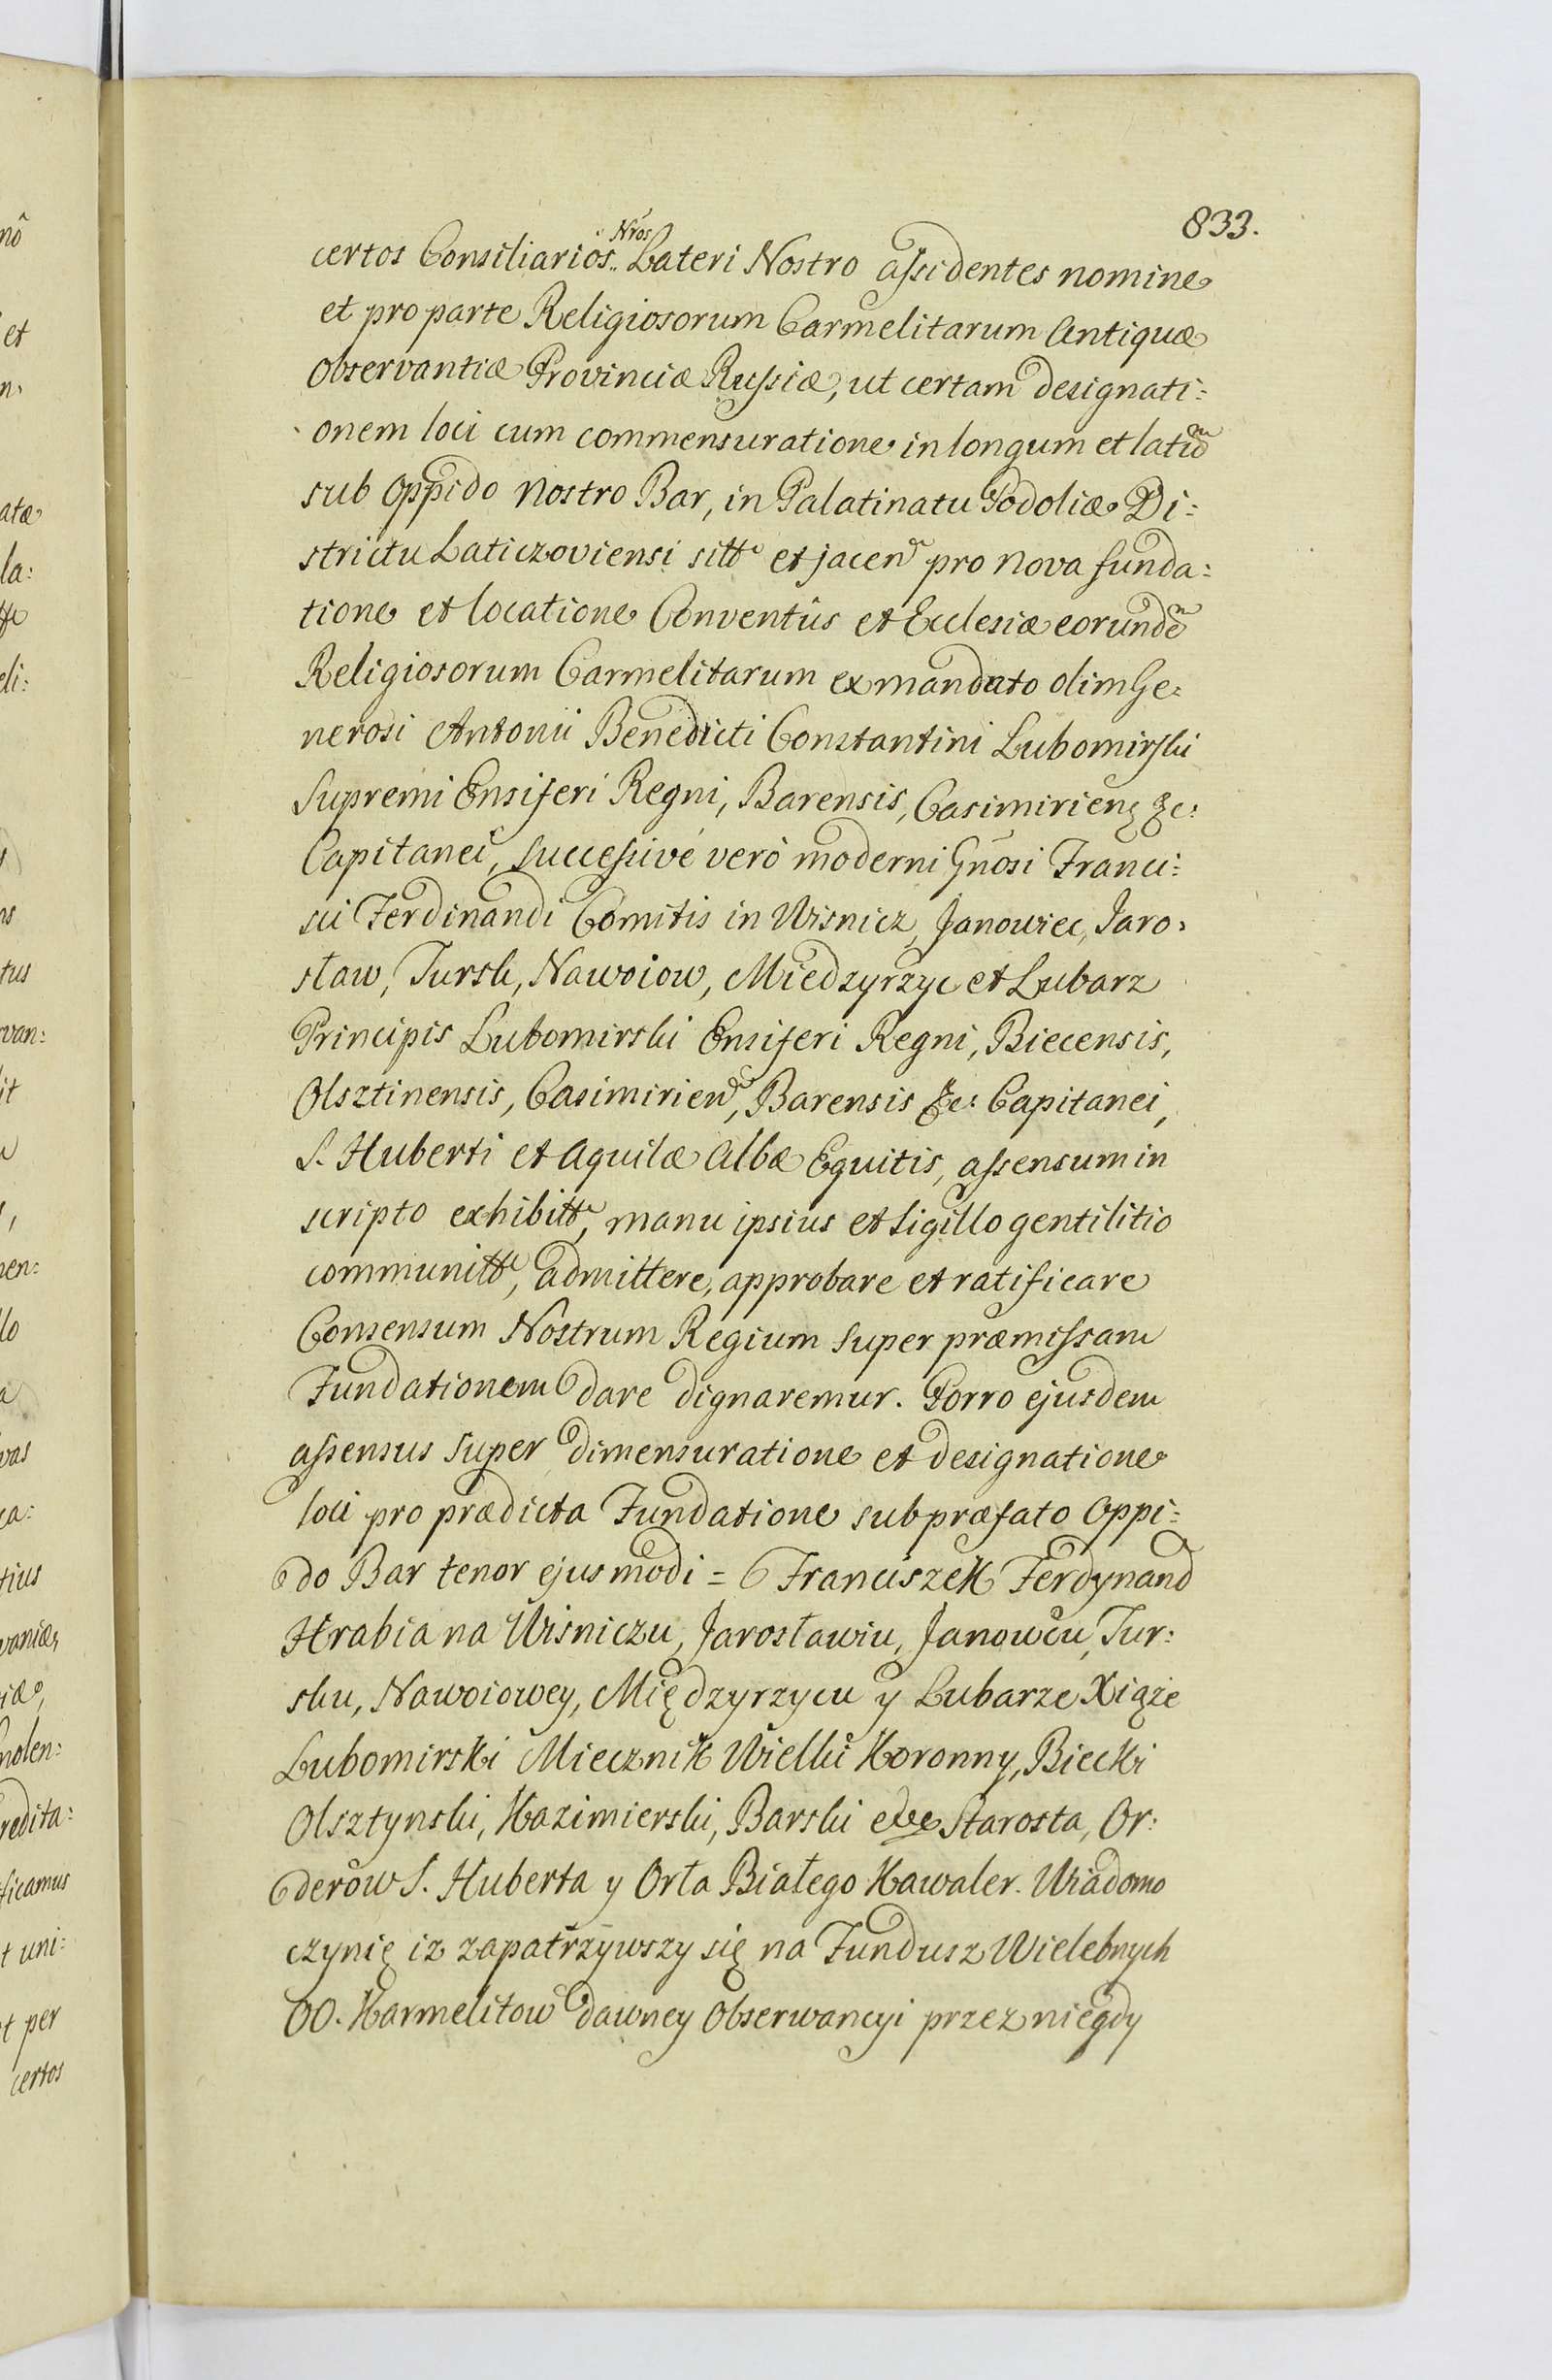 833.
certos Consiliarios Nros Lateri Nostro assidentes nomine
et pro parte Religiosorum Carmelitarum Antiquæ
Observantiæ Provinciæ Russiæ, ut certam designati=
onem loci cum commensuratione in longum et latum
sub Oppido Nostro Bar, in Palatinatu Podoliæ Di=
strictu Laticzoviensi sitt et jacen pro nova funda=
tione et locatione Conventûs et Ecclesiæ eorundem
Religiosorum Carmelitarum ex mandato olim Ge=
nerosi Antonii Benedicti Constantini Lubomirski
Supremi Ensiferi Regni, Barensis, Casimirien &c:
Capitanei, successivé verò moderni Gnosi Franci=
sci Ferdinandi Comitis in Wisnicz, Janowiec, Jaro=
sław, Tursk, Nawoiow, Miedzyrzyc et Lubarz
Principis Lubomirski Ensiferi Regni, Biecensis,
Olsztinensis, Casimirien, Barensis &c: Capitanei,
S. Huberti et Aquilæ Albæ Equitis, assensum in
scripto exhibitt, manu ipsius et Sigillo gentilitio
communitt, admittere, approbare et ratificare
Consensum Nostrum Regium super præmissam
Fundationem dare dignaremur. Porro ejusdem
assensus super dimensuratione et designatione
loci pro prædicta Fundatione sub præfato Oppi=
do Bar tenor ejusmodi = Franciszek Ferdynand
Hrabia na Wisniczu, Jarosławiu, Janowcu, Tur=
sku, Nawoiowey, Międzyrzycu y Lubarze Xiąże
Lubomirski Miecznik Wielki Koronny, Biecki
Olsztynski, Kazimierski, Barski &c Starosta, Or=
derów S. Huberta y Orła Białego Kawaler. Wiadomo
czynię iz zapatrzywszy się na Fundusz Wielebnych
OO. Karmelitow dawney Obserwancyi przez niegdy